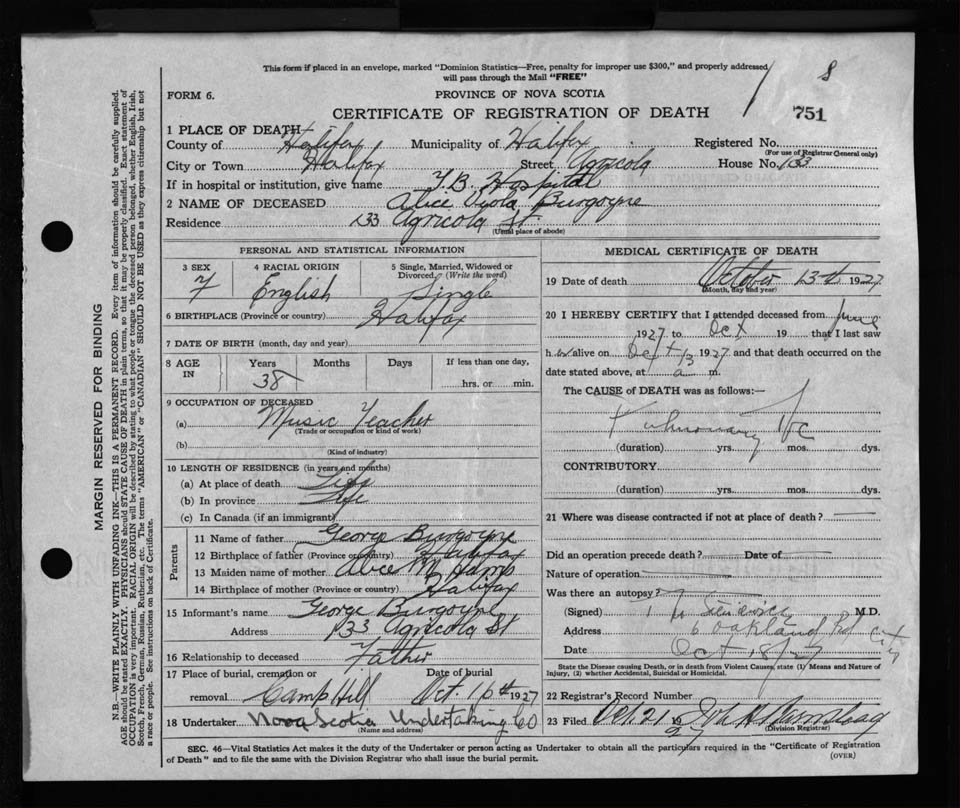 This form if placed in an envelope, marked "Dominion Statistics—Free, penalty for improper use $300," and properly addressed
will pass through the Mail "FREE"
8
FORM 6.
PROVINCE OF NOVA SCOTIA
CERTIFICATE OF REGISTRATION OF DEATH
751
1 PLACE OF DEATH
County of Halifax Municipality of Halifax Registered No.
(For use of Registrar General only)
City or Town Halifax Street Agricola House No. 133
If in hospital or institution, give name T.B. Hospital
2 NAME OF DECEASED Alice Viola Burgoyne
Residence 133 Agricola St
(Usual place of abode)
PERSONAL AND STATISTICAL INFORMATION
3 SEX 4 RACIAL ORIGIN 5 Single, Married, Widowed or
Divorced, (Write the word)
F English Single
6 BIRTHPLACE (Province or country) Halifax
7 DATE OF BIRTH (month, day and year)
8 AGE IN Years Months Days If less than one day,
38 hrs. or min.
9 OCCUPATION OF DECEASED
(a) Music Teacher
(Trade or occupation or kind of work)
(b)
(Kind of industry)
10 LENGTH OF RESIDENCE (in years and months)
(a) At place of death Life
(b) In province Life
(c) In Canada (if an immigrant)
Parents
11 Name of father George Burgoyne
12 Birthplace of father (Province or country) Halifax
13 Maiden name of mother Alice M
14 Birthplace of mother (Province or country) Halifax
15 Informant's name George Burgoyne
Address 133 Agricola St
16 Relationship to deceased Father
17 Place of burial, cremation or Date of burial
removal Camp Hill Oct. 16th 1927
18 Undertaker Nova Scotia Undertaking Co
(Name and address)
MEDICAL CERTIFICATE OF DEATH
19 Date of death October 13th 1927
(Month, day and year)
20 I HEREBY CERTIFY that I attended deceased from June
1927 to Oct 19 that I last saw
h er alive on Oct 13 1927 and that death occurred on the
date stated above, at a m.
The CAUSE of DEATH was as follows:
Pulmonary Tbc
(duration) yrs. mos. dys.
CONTRIBUTORY
(duration) yrs. mos. dys.
21 Where was disease contracted if not at place of death?
Did an operation precede death? Date of
Nature of operation
Was there an autopsy?
(Signed) M.D.
Address 6 Oakland Rd City
Date Oct 18/27
State the Disease causing Death, or in death from Violent Causes, state (1) Means and Nature of
Injury, (2) whether Accidental, Suicidal or Homicidal.
22 Registrar's Record Number
23 Filed Oct. 21 1927
(Division Registrar)
SEC. 46—Vital Statistics Act makes it the duty of the Undertaker or person acting as Undertaker to obtain all the particulars required in the "Certificate of Registration
of Death" and to file the same with the Division Registrar who shall issue the burial permit.
(OVER)
MARGIN RESERVED FOR BINDING
N.B.—WRITE PLAINLY WITH UNFADING INK—THIS IS A PERMANENT RECORD. Every item of information should be carefully supplied.
AGE should be stated EXACTLY. PHYSICIANS should STATE CAUSE OF DEATH in plain terms, so that it may be properly classified. Exact statement of
OCCUPATION is very important. RACIAL ORIGIN will be described by stating to what people or tongue the deceased person belonged, whether English, Irish,
Scotch, French, German, Russian, Ruthenian, etc. The terms "AMERICAN" or "CANADIAN" SHOULD NOT BE USED as they express citizenship but not
a race or people. See instructions on back of Certificate.